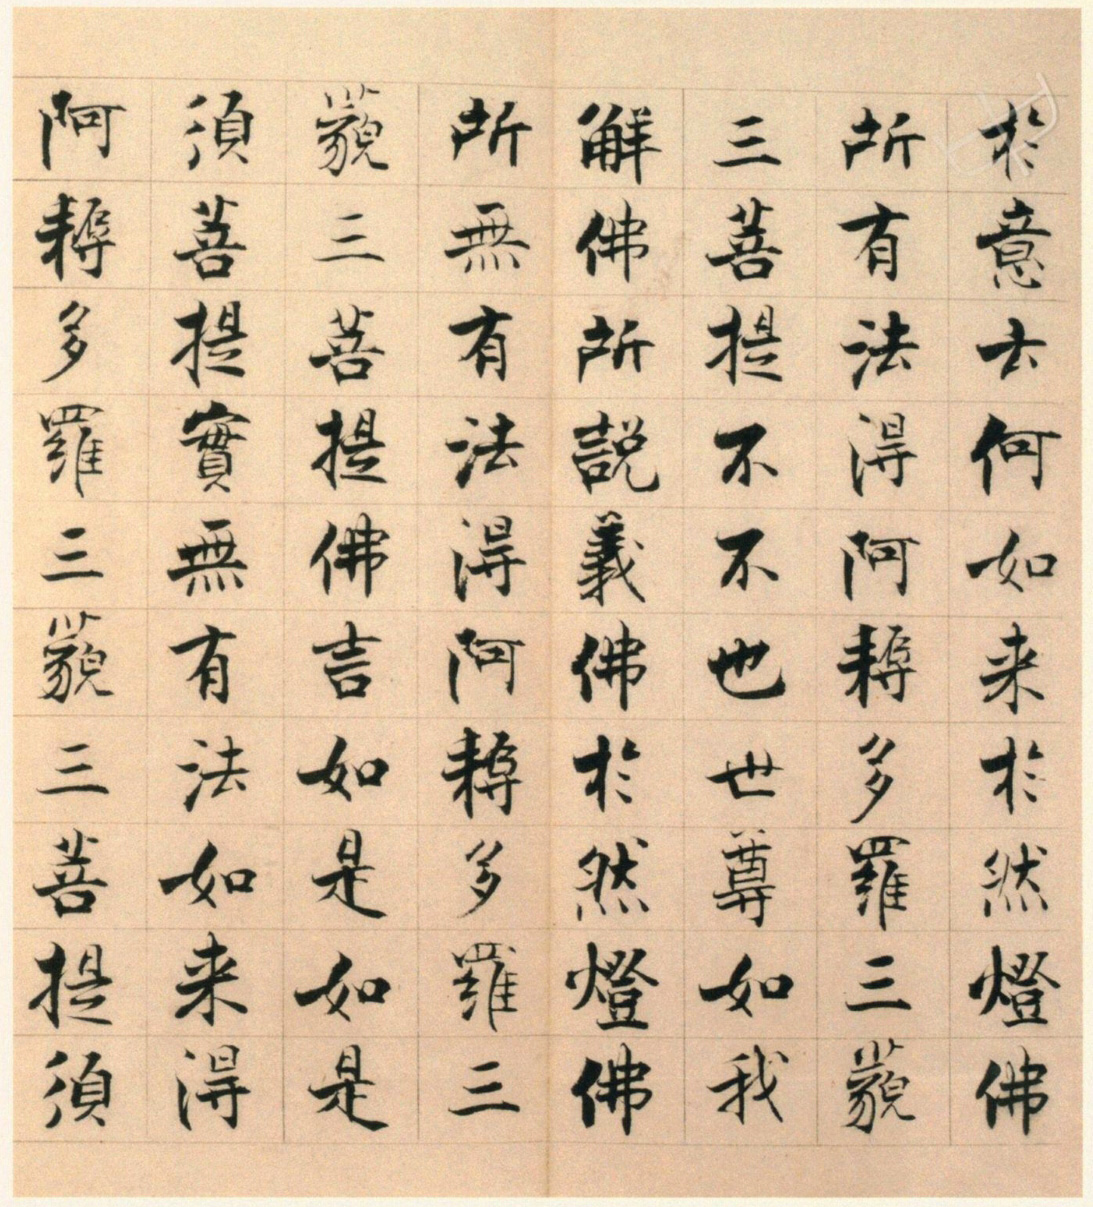 於意云何如来於然燈佛
所有法得阿耨多羅三藐
三菩提不不也世尊如我
解佛所說義佛於然燈佛
所無有法得阿耨多羅三
藐三菩提佛言如是如是
須菩提實無有法如来得
阿耨多羅三藐三菩提須